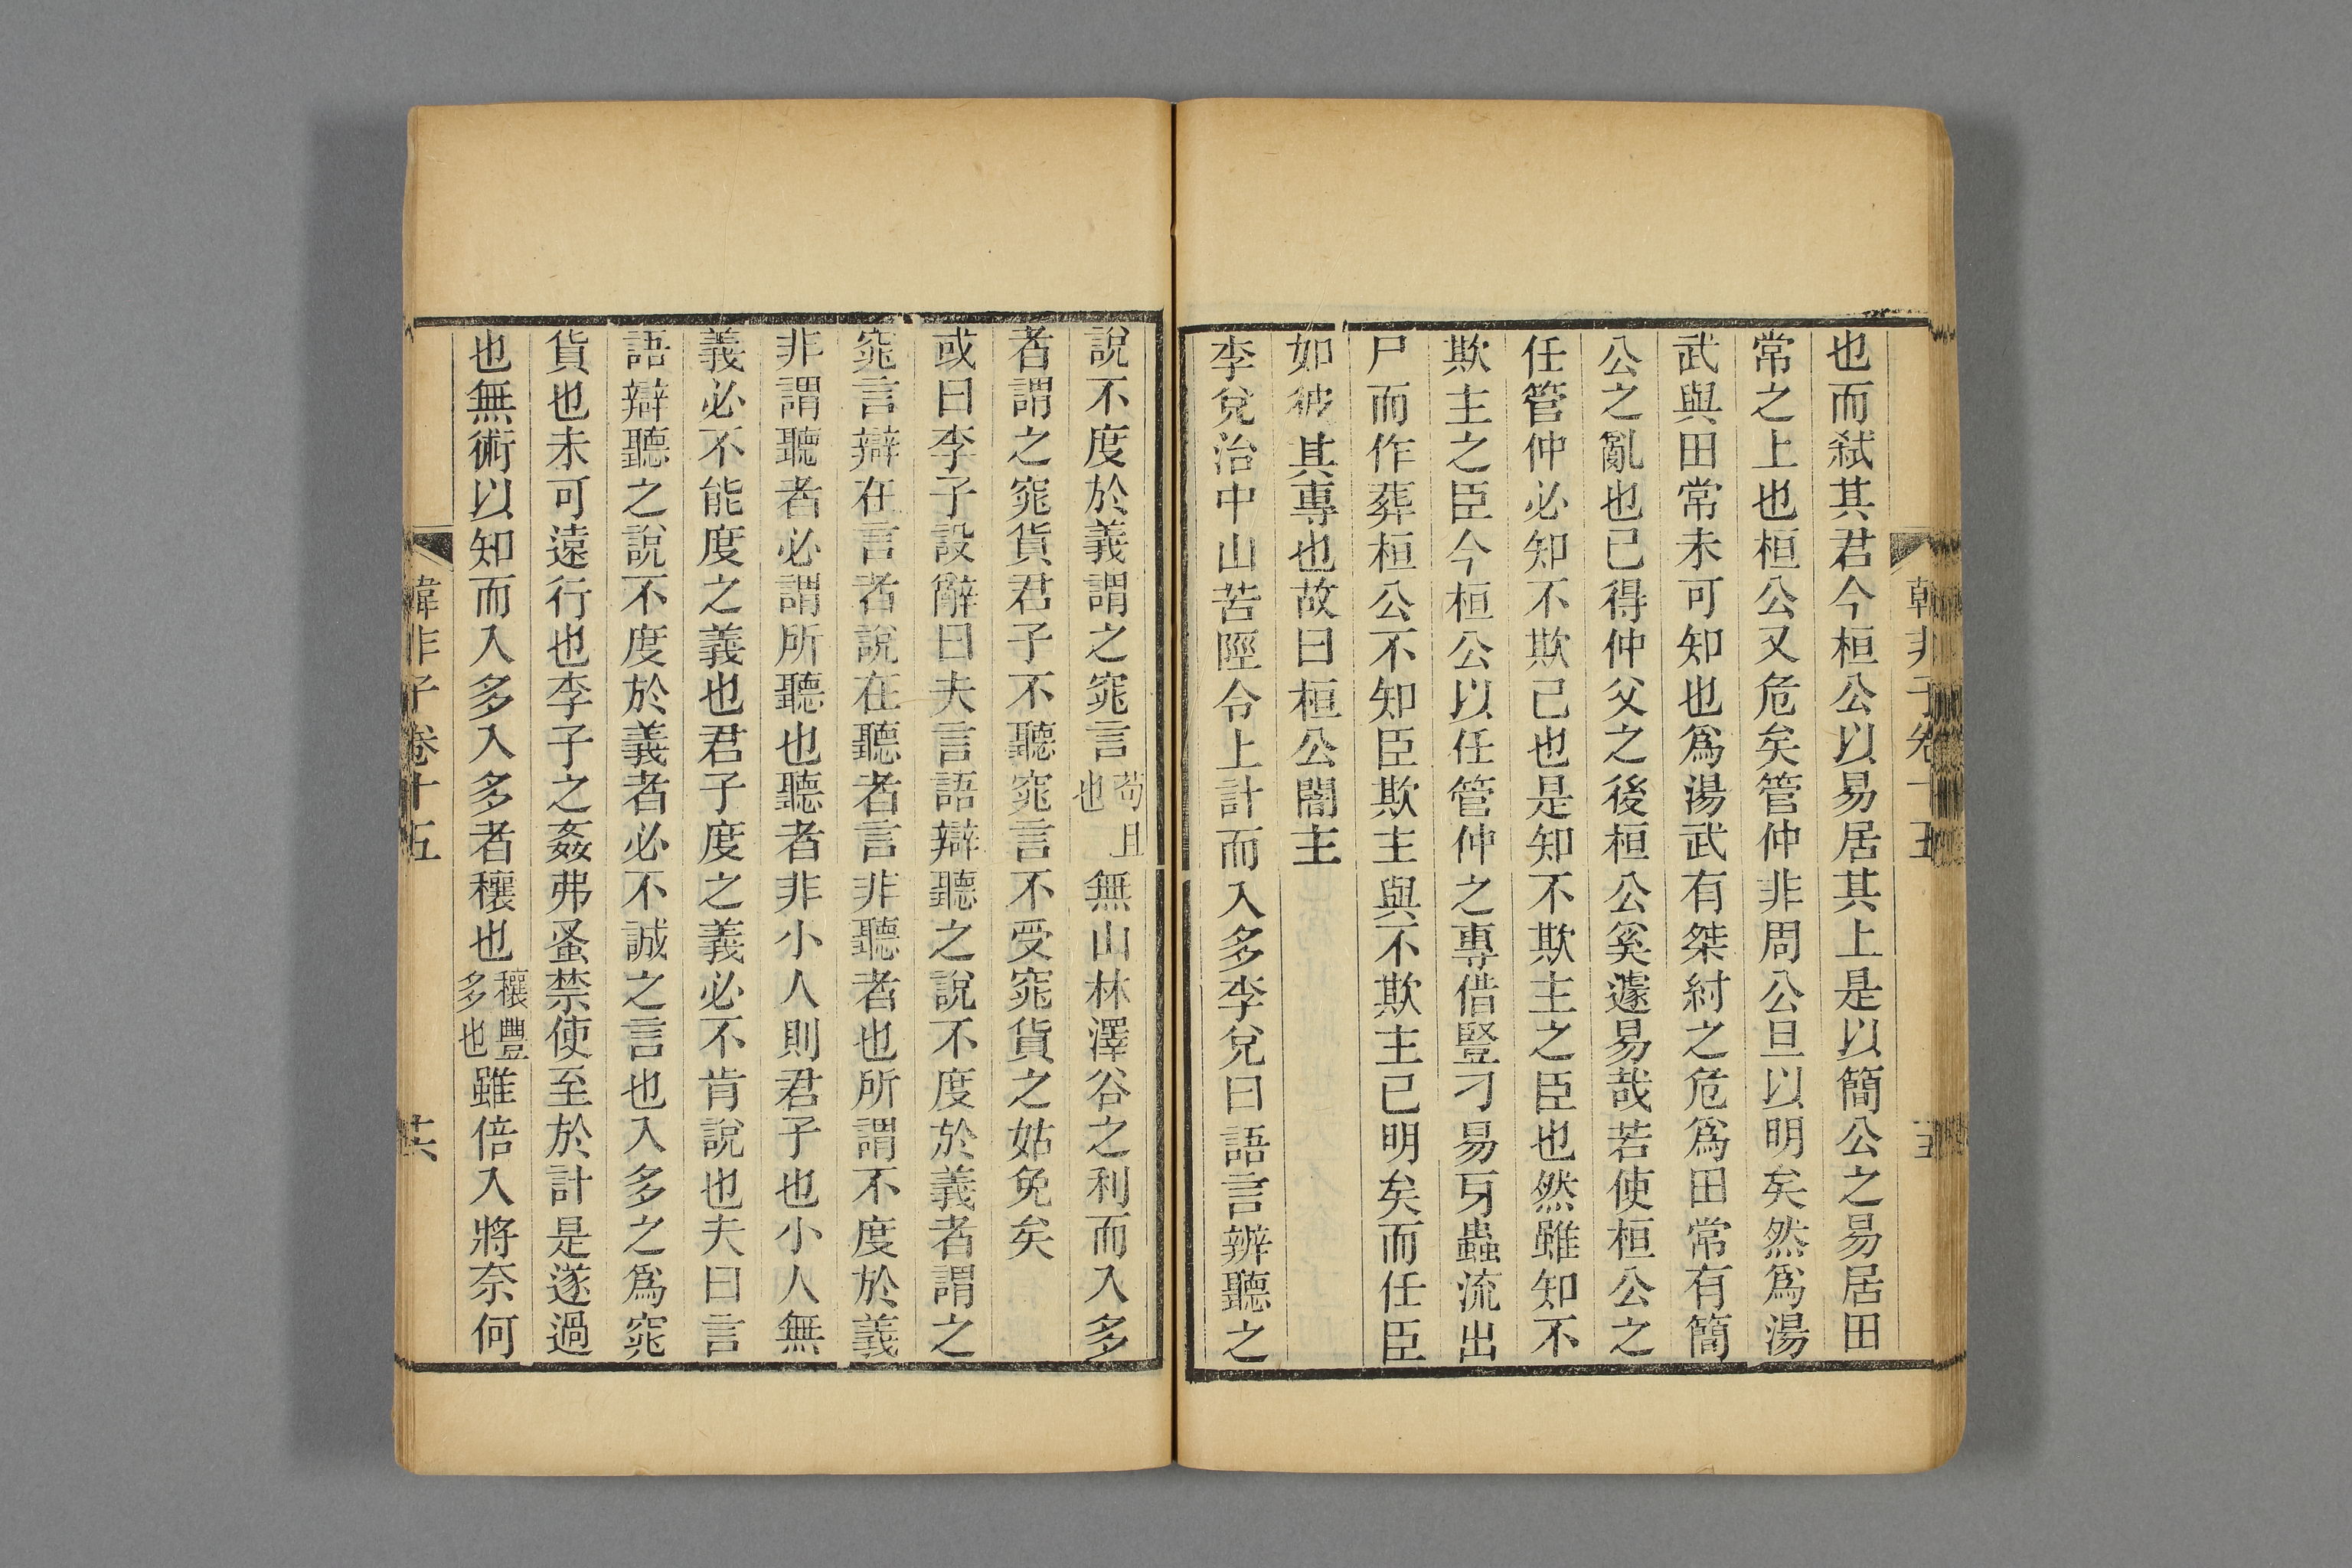 也而弑其君今桓公以易居其上是以簡公之易居田
常之上也桓公又危矣管仲非周公旦以明矣然爲湯
武與田常未可知也爲湯武有桀紂之危爲田常有簡
公之亂也已得仲父之後桓公奚遽易哉若使桓公之
任管仲必知不欺己也是知不欺主之臣也然雖知不
欺主之臣今桓公以任管仲之專借豎刁易牙蟲流出
尸而作葬桓公不知臣欺主與不欺主已明矣而任臣
如彼其專也故曰桓公闇主
李兌治中山苦陘令上計而入多李兌曰語言辨聽之
說不度於義謂之窕言苟且也無山林澤谷之利而入多
者謂之窕貨君子不聽窕言不受窕貨之姑免矣
或曰李子設辭曰夫言語辯聽之說不度於義者謂之
窕言辯在言者說在聽者言非聽者也所謂不度於義
非謂聽者必謂所聽也聽者非小人則君子也小人無
義必不能度之義也君子度之義必不肯說也夫曰言
語辯聽之說不度於義者必不誠之言也入多之爲窕
貨也未可遠行也李子之姦弗蚤禁使至於計是遂過
也無術以知而入多入多者穰也穰豐多也雖倍入將奈何
韓非子卷十五